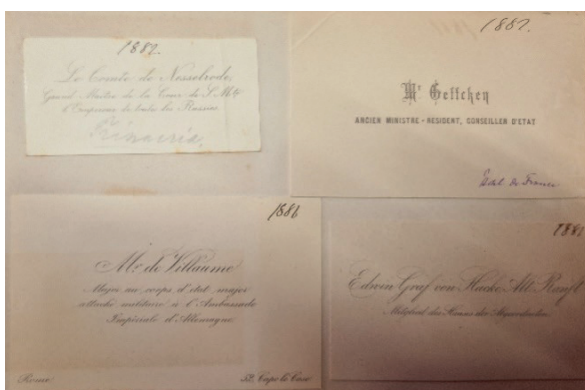 1882.
Le Comte de Nesselrode
Grand Maître de la Cour de S. M. te
l'Empereur de toutes les Russies
1882.
Mr Geffcken
ANCIEN MINISTRE-RESIDENT, CONSEILLER D'ETAT
de France
1881
Mr. de Villaume
Major au corps d'état major
attaché militaire à l'Ambassade
Impériale d'Allemagne
Rome
52, Capo le Case
1881
Edwin Graf von Hacke Alt Ranft
Mitglied des Hauses der Abgeordneten